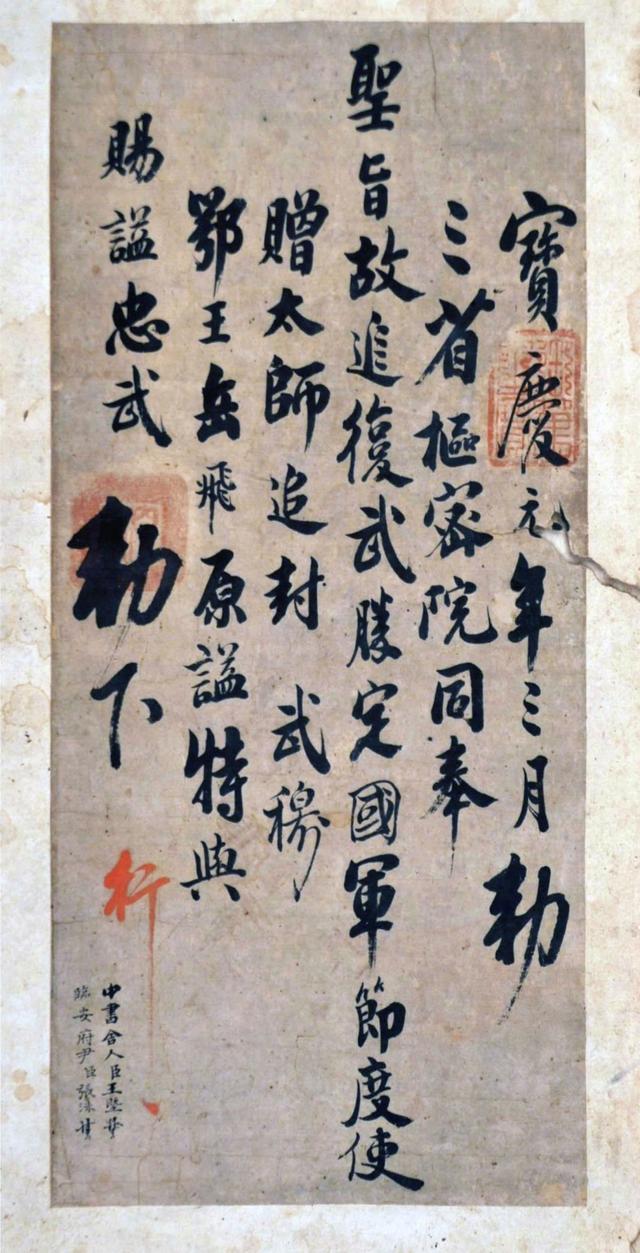 寶慶元年三月勅
三省樞密院同奉
聖旨故追復武勝定國軍節度使
贈太師追封 武穆
鄂王岳飛原謚特與
賜謚忠武 勅下
行
中書舍人臣王塈
臨安府尹臣張